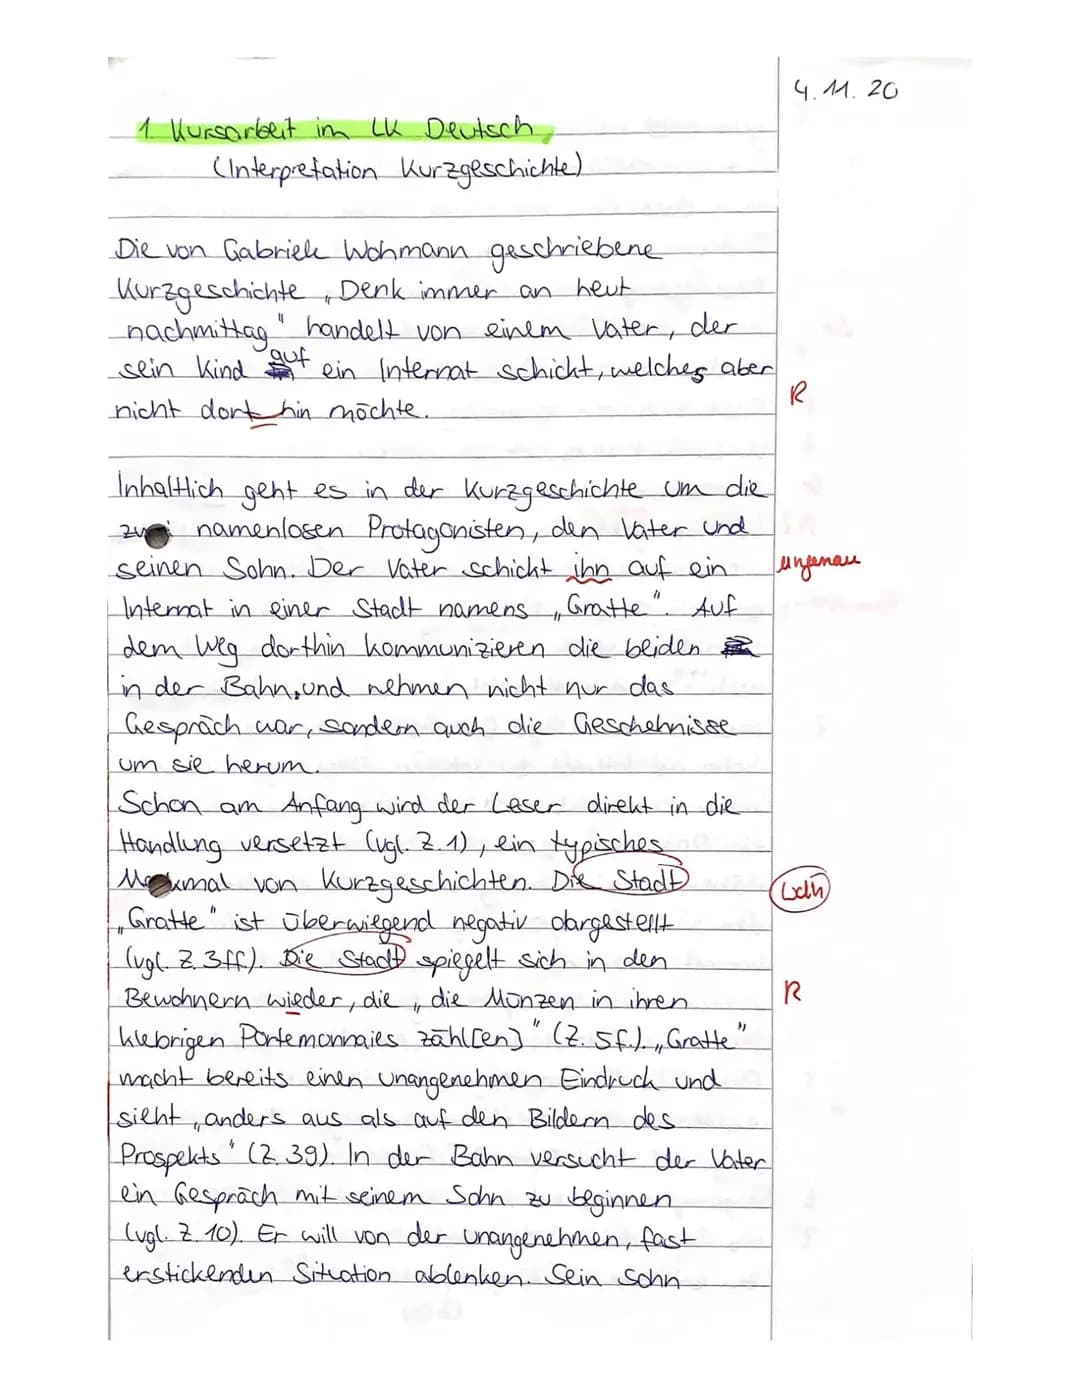 4.11.20
1. Kursarbeit im LK Deutsch
(Interpretation Kurzgeschichte)
Die von Gabriele Wohmann geschriebene
Kurzgeschichte „Denk immer an heut
nachmittag" handelt von einem Vater, der
sein Kind auf ein Internat schickt, welches aber
nicht dort hin möchte.
R
Inhaltlich geht es in der Kurzgeschichte um die
zwei namenlosen Protagonisten, den Vater und
seinen Sohn. Der Vater schickt ihn auf ein
ungenau
Internat in einer Stadt namens „Gratte". Auf
dem Weg dorthin kommunizieren die beiden
in der Bahn, und nehmen nicht nur das
Gespräch war, sondern auch die Geschehnisse
um sie herum.
Schon am Anfang wird der Leser direkt in die
Handlung versetzt (vgl. Z.1), ein typisches
Merkmal von Kurzgeschichten. Die Stadt
Wdh
„Gratte" ist überwiegend negativ dargestellt
(vgl. Z. 3ff.). Die Stadt spiegelt sich in den
Bewohnern wieder, die „die Münzen in ihren
R
klebrigen Portemonnaies zähl[en]" (Z. 5f.). „Gratte"
macht bereits einen unangenehmen Eindruck und
sieht „anders aus als auf den Bildern des
Prospekts" (Z. 39). In der Bahn versucht der Vater
ein Gespräch mit seinem Sohn zu beginnen
(vgl. Z. 10). Er will von der unangenehmen, fast
erstickenden Situation ablenken. Sein Sohn